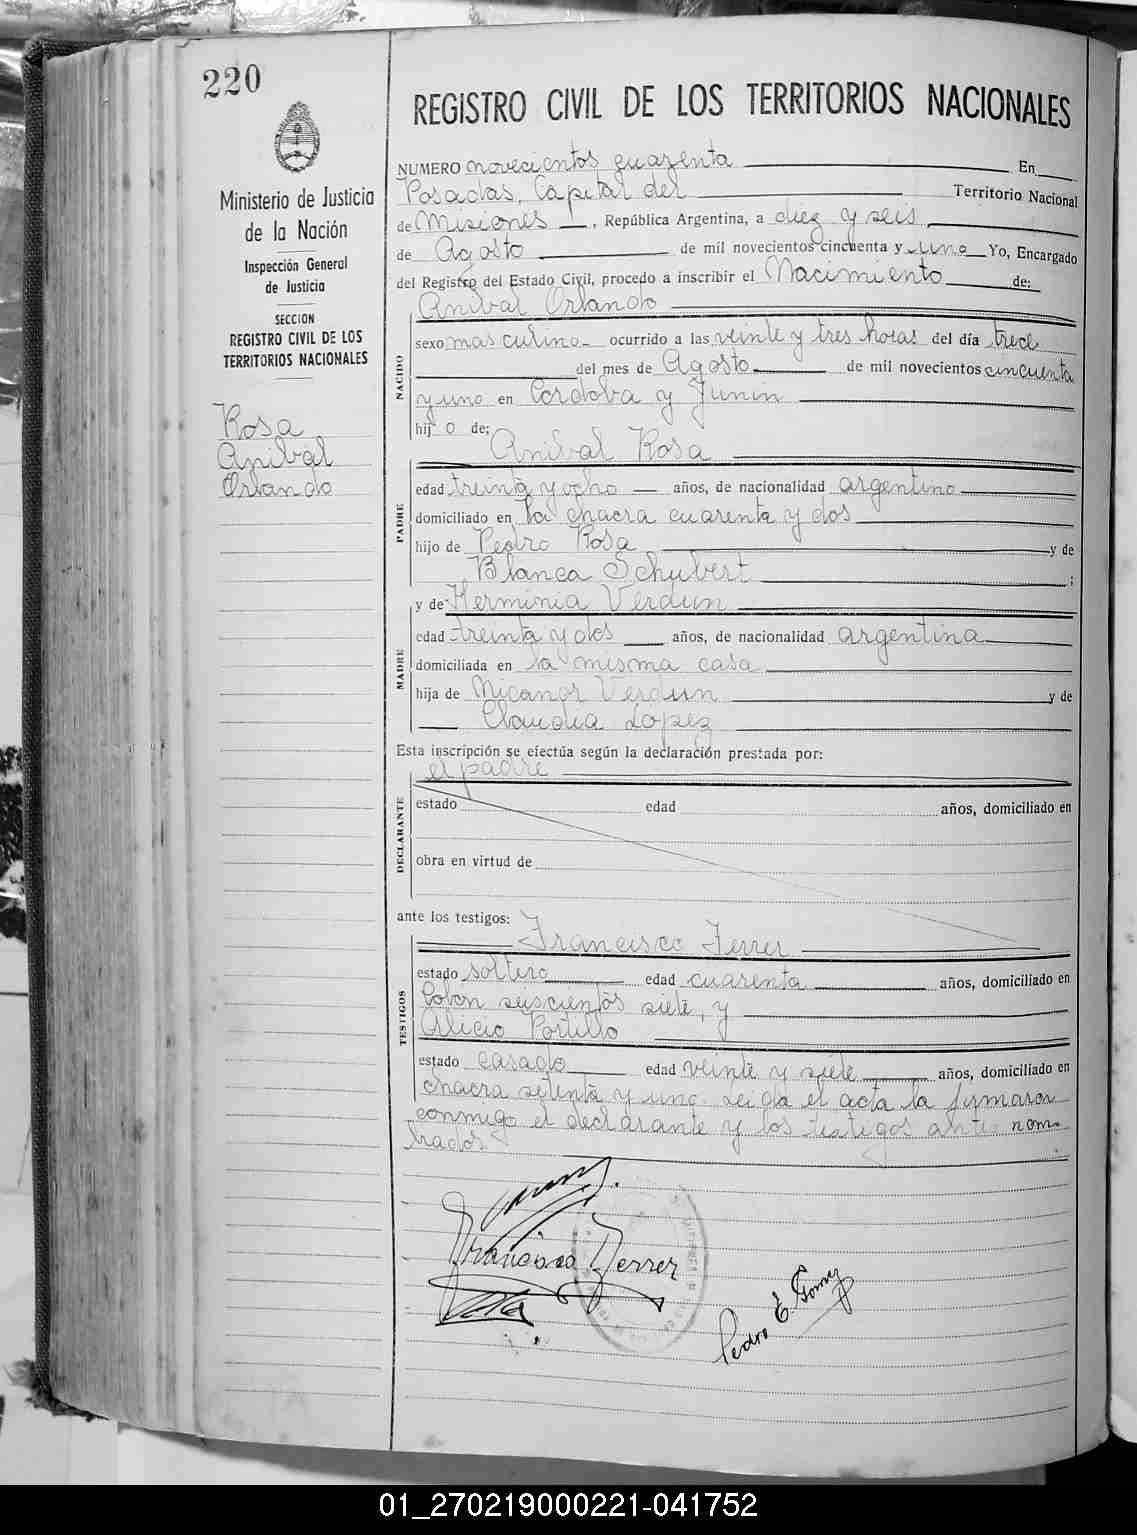 220
Ministerio de Justicia
de la Nación
Inspección General
de Justicia
SECCION
REGISTRO CIVIL DE LOS
TERRITORIOS NACIONALES
Rosa
Anibal
Orlando
REGISTRO CIVIL DE LOS TERRITORIOS NACIONALES
NUMERO novecientos cuarenta En
Posadas, Capital del Territorio Nacional
de Misiones, República Argentina, a diez y seis
de Agosto de mil novecientos cincuenta y uno Yo, Encargado
del Registro del Estado Civil, procedo a inscribir el Nacimiento de:
Anibal Orlando
NACIDO
sexo masculino ocurrido a las veinte y tres horas del día trece
del mes de Agosto de mil novecientos cincuenta
y uno en Cordoba y Junin
hijo de:
Anibal Rosa
PADRE
edad treinta y ocho años, de nacionalidad argentino
domiciliado en la chacra cuarenta y dos
hijo de Pedro Rosa y de
Blanca Schubert ;
y de Herminia Verdun
MADRE
edad treinta y dos años, de nacionalidad argentina
domiciliada en la misma casa
hija de Nicanor Verdun y de
Claudia Lopez
Esta inscripción se efectúa según la declaración prestada por:
el padre
DECLARANTE
estado edad años, domiciliado en
obra en virtud de
ante los testigos:
Francisco Ferrer
TESTIGOS
estado soltero edad cuarenta años, domiciliado en
Colon seiscientos siete, y
Alicio Portillo
estado casado edad veinte y siete años, domiciliado en
chacra setenta y uno. Leida el acta la firmaron
conmigo el declarante y los testigos ante nom-
brados.
Francisco Ferrer
Pedro E. Gomez
01_270219000221-041752